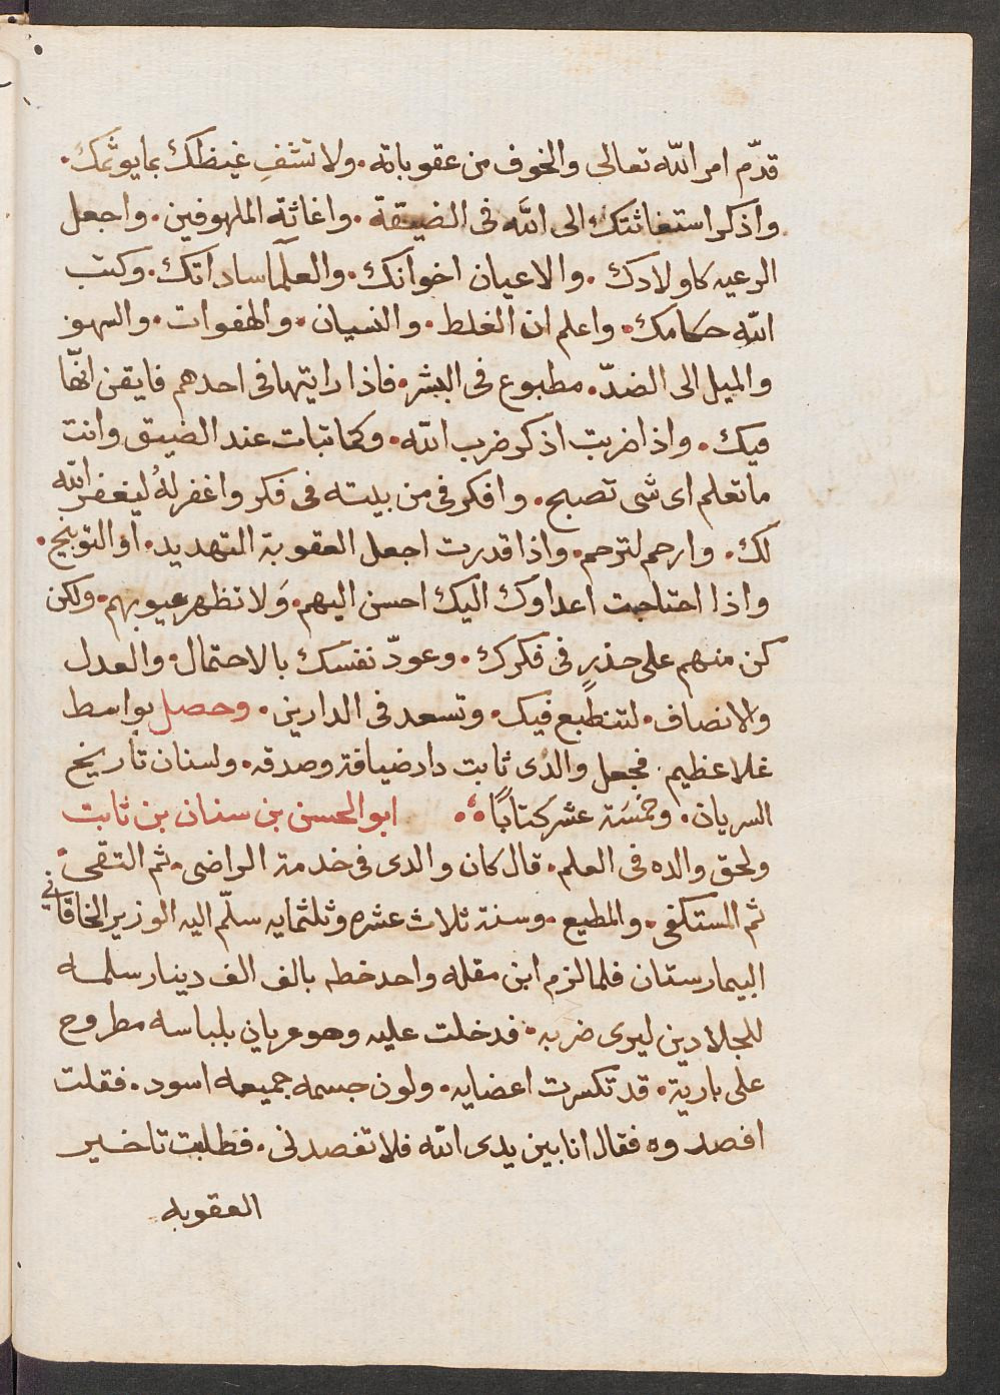 قدّم امر اللّه تعالى والخوف من عقوباته. ولا تشفِ غيظك بما يوثمك.
واذكر استغاثتك الى اللّه فى الضيقة. واغاثة الملهوفين. واجعل
الرعيه كاولادك. والاعيان اخوانك. والعلمآ ساداتك. وكتب
اللّه حكامك. واعلم ان الغلط. والنسيان. والهفوات. والسهو.
والميل الى الضدّ. مطبوع فى البشر. فاذا رايتها فى احدهم فايقن انّها
فيك. واذا ضربت اذكر ضرب اللّه. وكما تبات عند الضيق وانت
ما تعلم اى شى تصبح. وافكر فى من بيته فى فكر واغفر لهُ ليغفر اللّه
لك. وارحم لترحم. واذا قدرت اجعل العقوبة التهديد. او التوبيخ.
واذا احتاجت اعداوك اليك احسن اليهم. وَلا تظهر عيوبهم. ولكن
كن منهم على حذرٍ فى فكرك. وعودّ نفسك بالاحتمال. والعدل
والانصاف. لتنطبع فيك. وتسعد فى الدارين. وحصل بواسط
غلا عظيم. فجعل والدى ثابت دار ضيافة وصدقه. ولسنان تاريخ
السريان. وخمسَة عشر كتابًا. ابو الحسن بن سنان بن ثابت
ولحق والده فى العلم. قال كان والدى فى خدمة الراضى. ثم التقى.
ثم المستكفى. والمطيع. وسنة ثلاث عشره وثلثمايه سلّم اليه الوزير الخاقانى
البيمارستان فلما لزم ابن مقله واحد خطه بالف الف دينار سلمه
للجلادين ليرى ضربه. فدخلت عليه وهو عريان بلباسه مطروح
على بارية. قد تكسرت اعضايه. ولون جسمه جميعه اسود. فقلت
افصدوه فقال انا بين يدى اللّه فلا تفصدنى. فطلبت تاخير
العقوبه